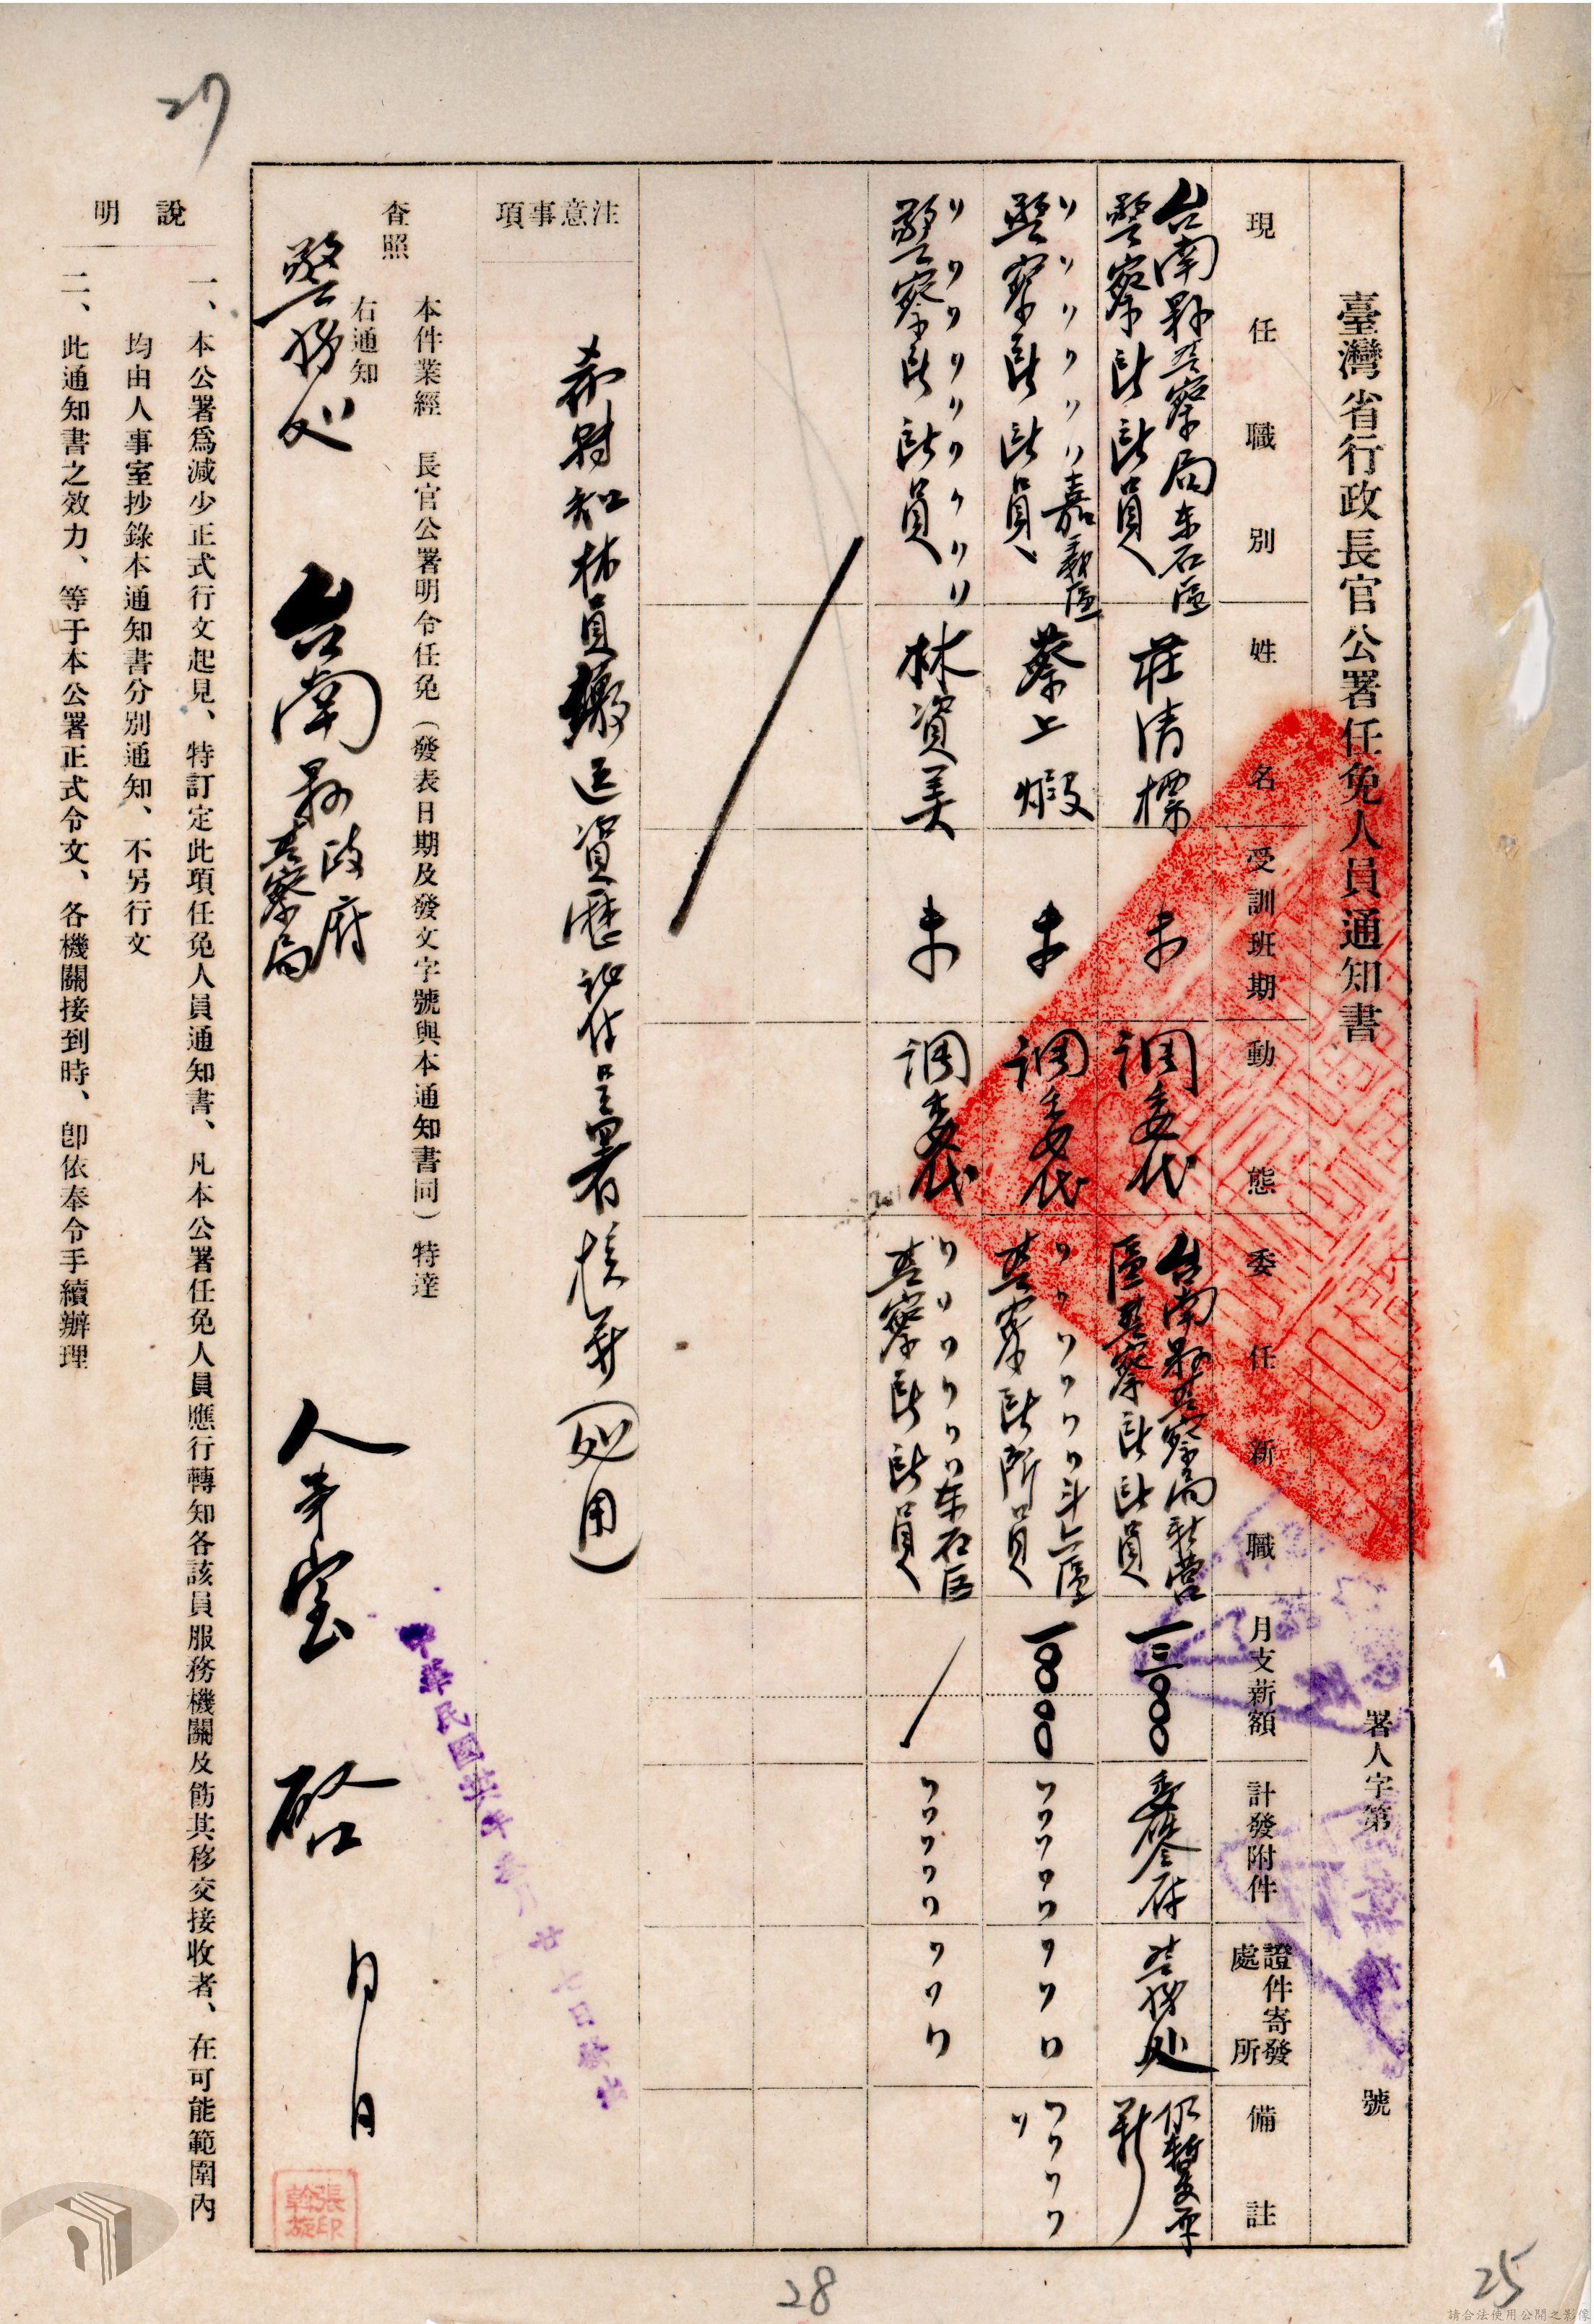 臺灣省行政長官公署任免人員通知書
署人字第 號
現任職別
姓名
受訓班期
動態
委任新職
月支薪額
計發附件
證件寄發處所
備註
台南縣警察局東石區
警察所所員
莊清標
未
調委代
台南縣警察局新營
區警察所所員
一三〇〇〇
委令存
警務处
仍暫支原
薪
〃〃〃〃〃〃嘉義區
警察所所員
蔡上嘏
未
調委代
〃〃〃〃〃〃斗六區
警察所所員
一〇〇〇〇
〃〃〃〃〃
〃〃〃
〃〃〃〃
〃
〃〃〃〃〃〃〃〃〃
警察所所員
林資美
未
調委代
〃〃〃〃〃〃東石区
警察所所員
〃〃〃〃〃
〃〃〃
注意事項
希轉知林員繳送資歷证件呈署核薪(处用)
本件業經 長官公署明令任免(發表日期及發文字號與本通知書同)特達
查照
右通知
警務处 台南縣政府
警察局
人事室 啓 月 日
中華民國卅六年 月廿七日發出
張印幹旋
說明
一、本公署爲減少正式行文起見、特訂定此項任免人員通知書、凡本公署任免人員應行轉知各該員服務機關及飭其移交接收者、在可能範圍內
均由人事室抄錄本通知書分別通知、不另行文
二、此通知書之效力、等于本公署正式令文、各機關接到時、卽依奉令手續辦理
27
28
25
請合法使用公開之影像